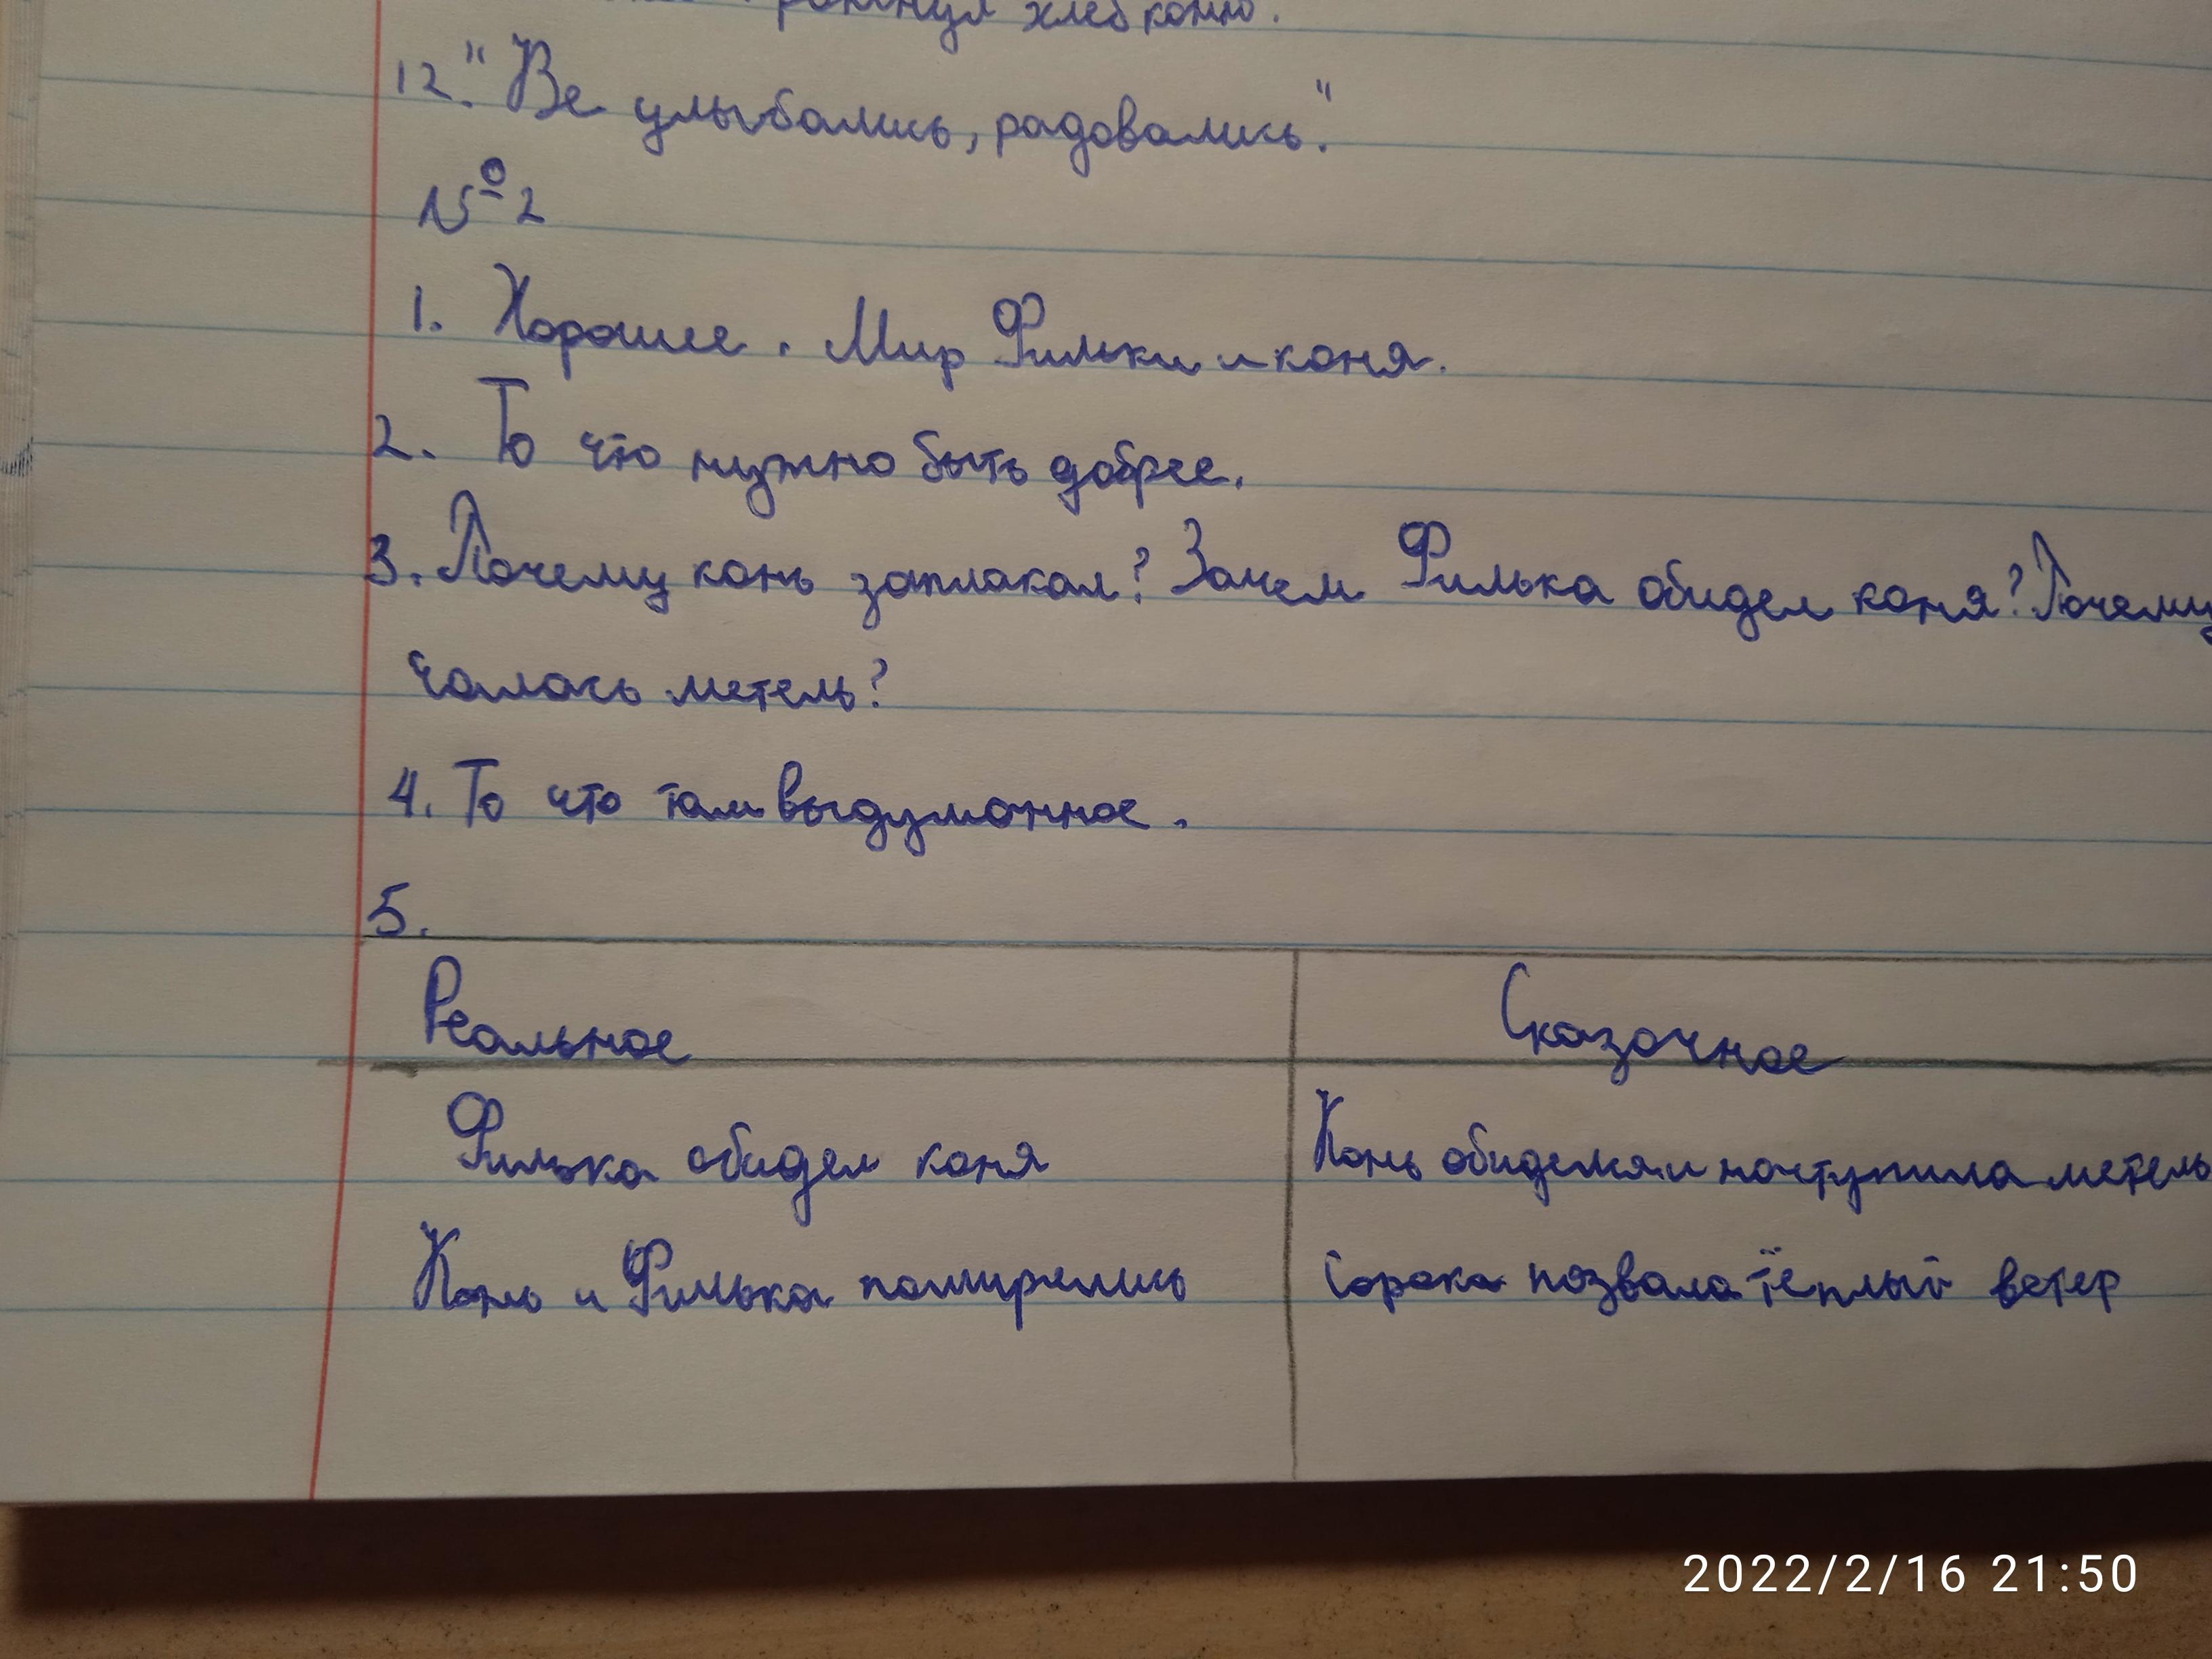 хлеб коню.
12. "Ве улыбались, радовались."
№2
1. Хорошее. Мир Фильки и коня.
2. То что нужно быть добрее.
3. Почему конь заплакал? Зачем Филька обидел коня? Почему
чалась метель?
4. То что там выдуманное.
5.
Реальное Сказочное
Филька обидел коня Конь обиделся и наступила метель
Конь и Филька помирились Сорока позвала тёплый ветер
2022/2/16 21:50